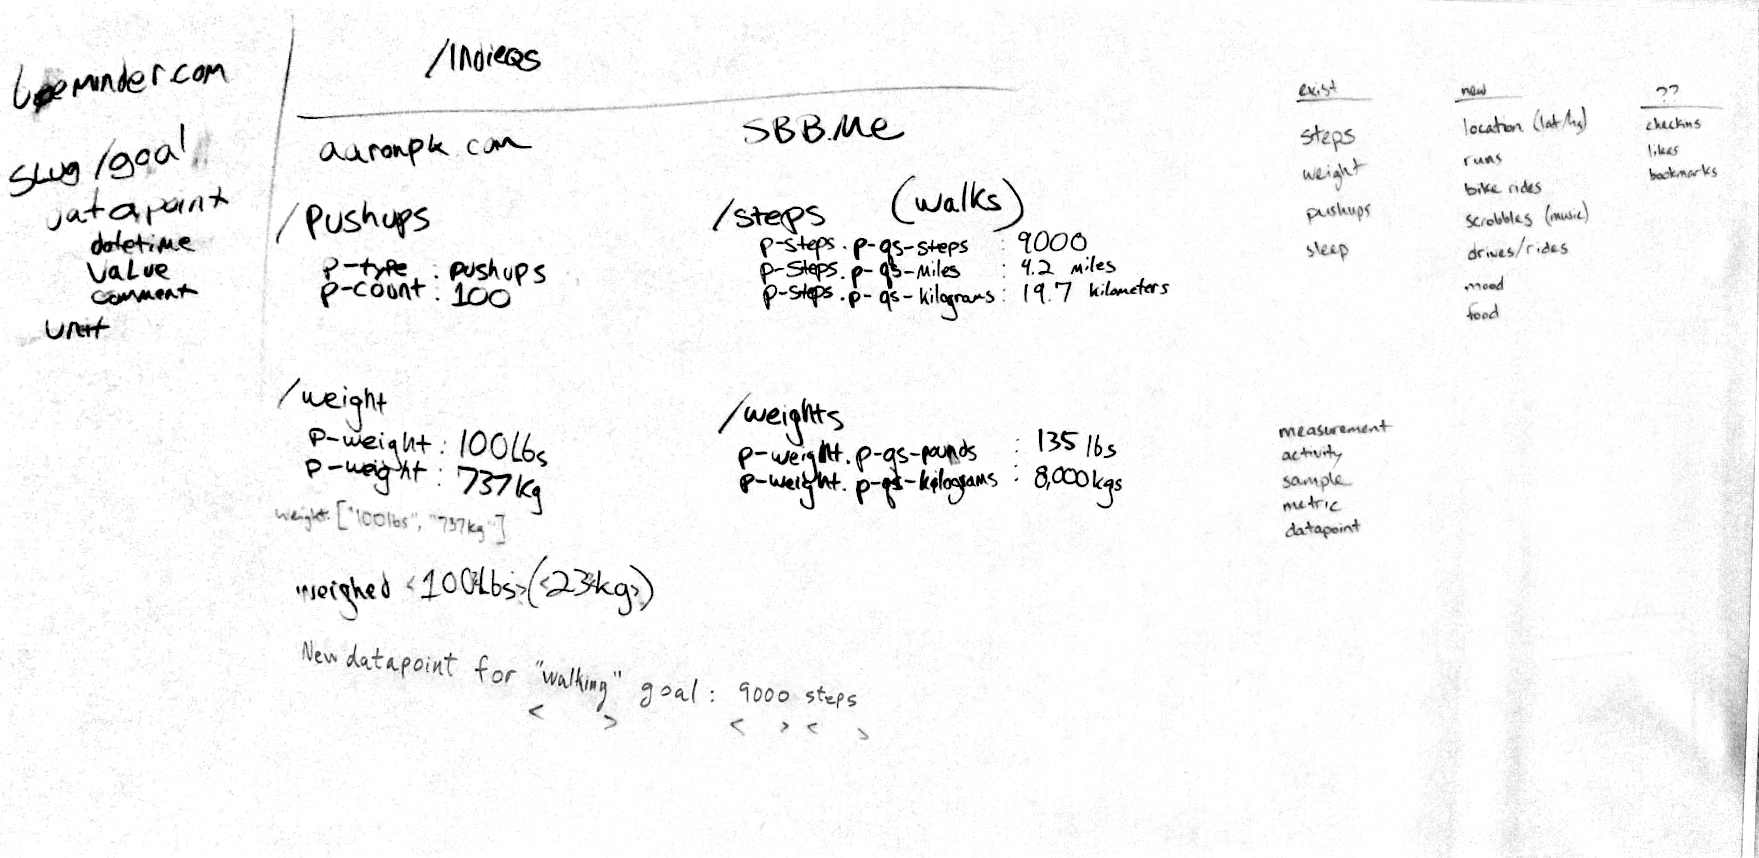 beeminder.com
slug/goal
datapoint
datetime
value
comment
unit
/IndieQS
aaronpk.com
/pushups
p-type : pushups
p-count : 100
/weight
p-weight : 100Lbs
p-weight : 737kg
weight: ["100lbs", "737kg"]
weighed <100Lbs>(<23kg>)
New datapoint for "walking" goal : 9000 steps
< > < > < >
SBB.Me
/steps (walks)
p-steps.p-qs-steps : 9000
p-steps.p-qs-miles : 4.2 miles
p-steps.p-qs-kilograms : 19.7 kilometers
/weights
p-weight.p-qs-pounds : 135 lbs
p-weight.p-qs-kilograms : 8,000kgs
exist
steps
weight
pushups
sleep
new
location (lat/lng)
runs
bike rides
scrobbles (music)
drives/rides
mood
food
??
checkins
likes
bookmarks
measurement
activity
sample
metric
datapoint